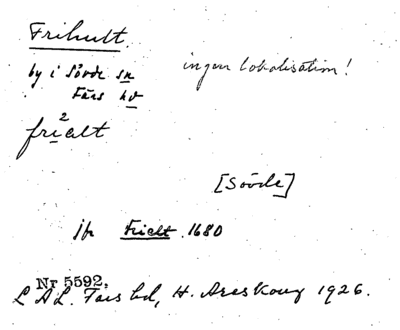 Frihult.
by i Sövde sn
Färs hd
ingen lokalisation!
fri²alt
[Sövde]
jfr Frielt 1680
Nr 5592,
L A L. Färs hd, H. Areskoug 1926.